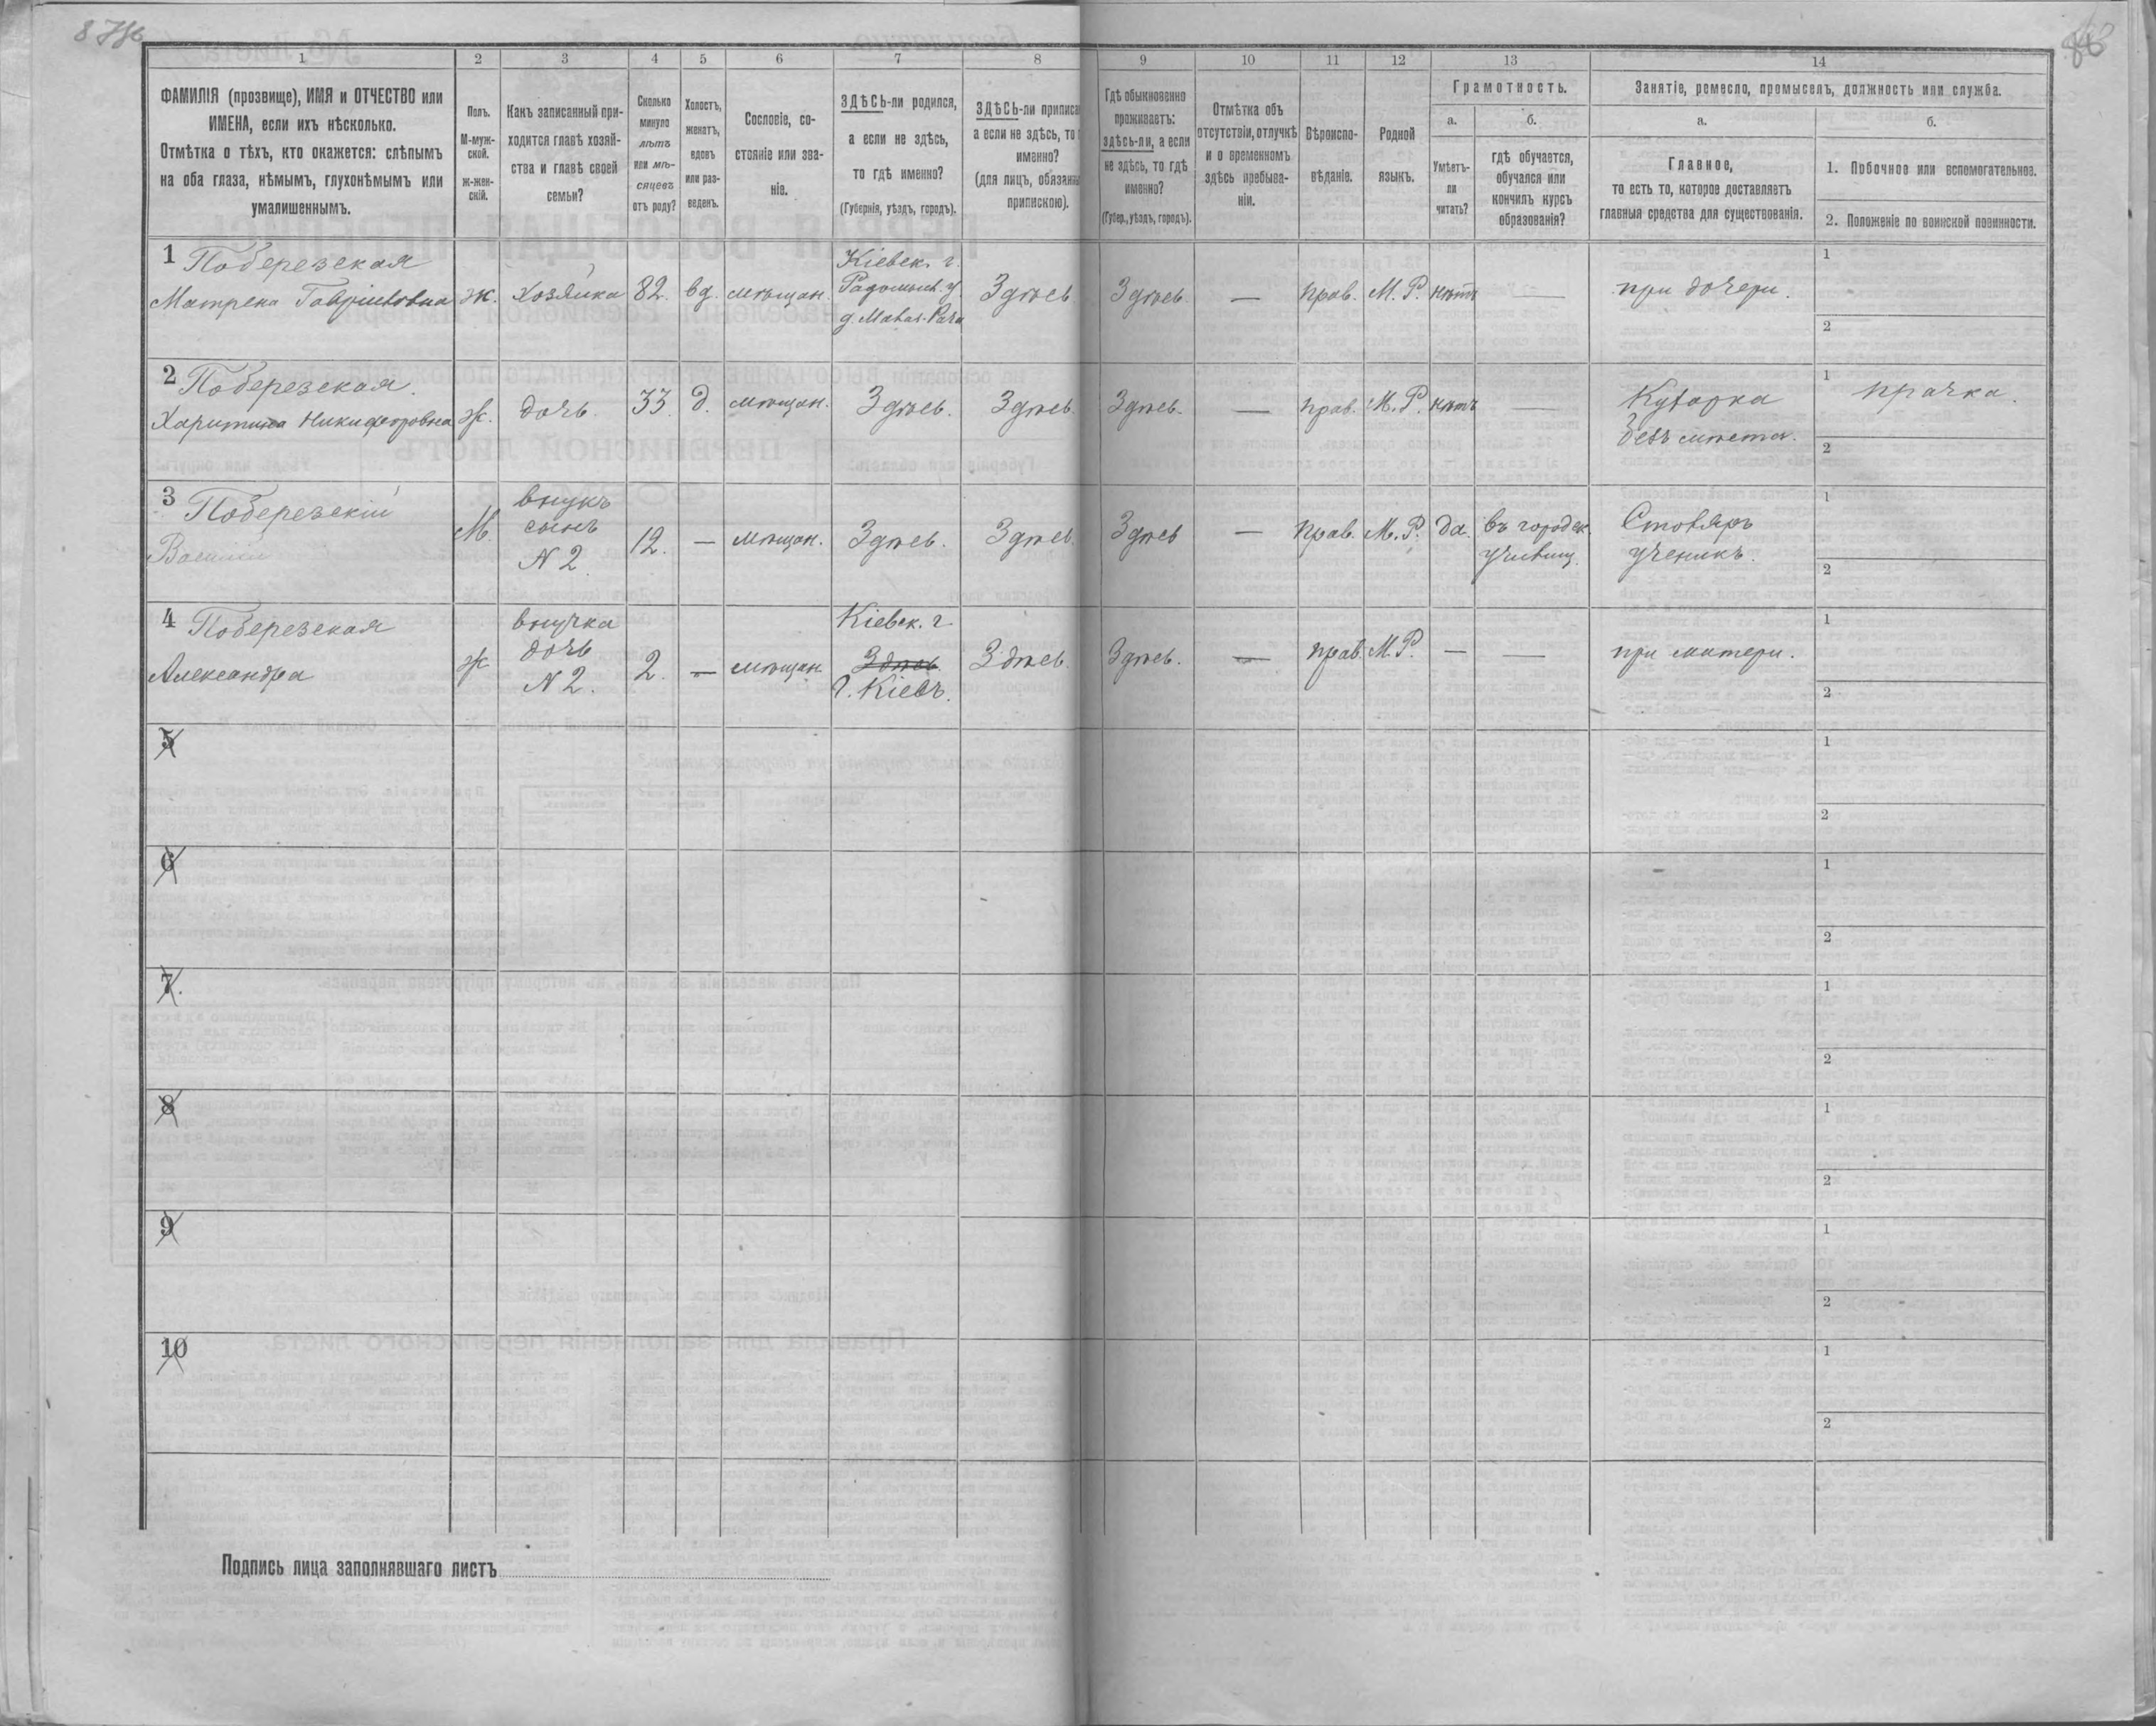 1
2
3
4
5
6
7
8
9
10
11
12
13
14
ФАМИЛІЯ (прозвище), ИМЯ и ОТЧЕСТВО или
ИМЕНА, если ихъ нѣсколько.
Отмѣтка о тѣхъ, кто окажется: слѣпымъ
на оба глаза, нѣмымъ, глухонѣмымъ или
умалишеннымъ.
Полъ.
М-муж-
ской.
ж-жен-
скій.
Какъ записанный при-
ходится главѣ хозяй-
ства и главѣ своей
семьи?
Сколько
минуло
лѣтъ
или мѣ-
сяцевъ
отъ роду?
Холостъ,
женатъ,
вдовъ
или раз-
веденъ.
Сословіе, со-
стояніе или зва-
ніе.
ЗДѢСЬ-ли родился,
а если не здѣсь,
то гдѣ именно?
(Губернія, уѣздъ, городъ).
ЗДѢСЬ-ли приписа
а если не здѣсь, то
именно?
(для лицъ, обязанны
припискою).
Гдѣ обыкновенно
проживаетъ:
здѣсь-ли, а если
не здѣсь, то гдѣ
именно?
(Губер., уѣздъ, городъ).
Отмѣтка объ
отсутствіи, отлучкѣ
и о временномъ
здѣсь пребыва-
ніи.
Вѣроиспо-
вѣданіе.
Родной
языкъ.
Грамотность.
а.
Умѣетъ-
ли
читать?
б.
гдѣ обучается,
обучался или
кончилъ курсъ
образованія?
Занятіе, ремесло, промыселъ, должность или служба.
а.
Главное,
то есть то, которое доставляетъ
главныя средства для существованія.
б.
1. Побочное или вспомогательное.
2. Положеніе по воинской повинности.
1 Поберезская
Матрена Гавріиловна
ж.
Хозяйка
82.
вд.
мѣщан.
Кіевск. г.
Радомысл. у.
Здѣсь
Здѣсь.
—
прав.
М. Р.
нѣтъ
—
при дочери.
1
2
2 Поберезская.
Харитина Никифоровна
ж.
дочь.
33.
д.
мѣщан.
Здѣсь.
Здѣсь.
Здѣсь.
—
прав.
М. Р.
нѣтъ
—
Кухарка
безъ мѣста.
1
прачка.
2
3 Поберезскій
Василій
М.
внукъ
сынъ
N 2.
12.
—
мѣщан.
Здѣсь.
Здѣсь.
Здѣсь
—
прав.
М. Р.
да.
въ городск.
училищ.
Столяръ
ученикъ.
1
2
4 Поберезская
Александра
ж.
внучка
дочь
N 2.
2.
—
мѣщан.
Кіевск. г.
Здѣсь
г. Кіевъ.
Здѣсь.
Здѣсь.
—
прав.
М. Р.
—
—
при матери.
1
2
5
1
2
6
1
2
7
1
2
8
1
2
9
1
2
10
1
2
Подпись лица заполнявшаго листъ